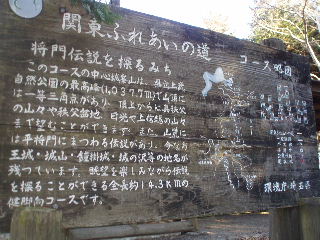 関東ふれあいの道
コース略図
将門伝説を探るみち
このコースの中心城峯山は、県立上武
自然公園の最高峰(1,037.7m)で山頂に
は一等三角点があり、頂上からは奥秩父
の山々や秩父盆地、日光や上信越の山々
まで望むことができます。また、山麓に
は平将門にまつわる伝説があり、今なお
王城・城山・鐘掛城・城の沢等の地名が
残っています。眺望を楽しみながら伝説
を探ることができる全長約14.3Kmの
健脚向コースです。
環境庁・埼玉県